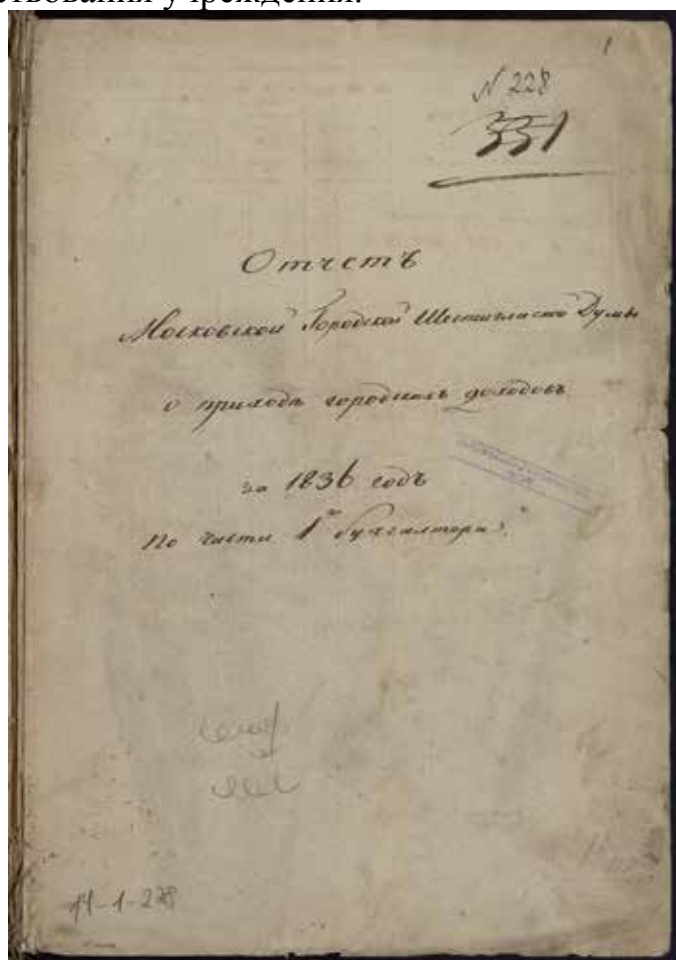 ствования учреждения.
1
N 228
331
Отчетъ
Московской Городской Шестигласной Думы
о приходѣ городскихъ доходовъ
за 1836 годъ
По части 1го бухгалтера.
14-1-228